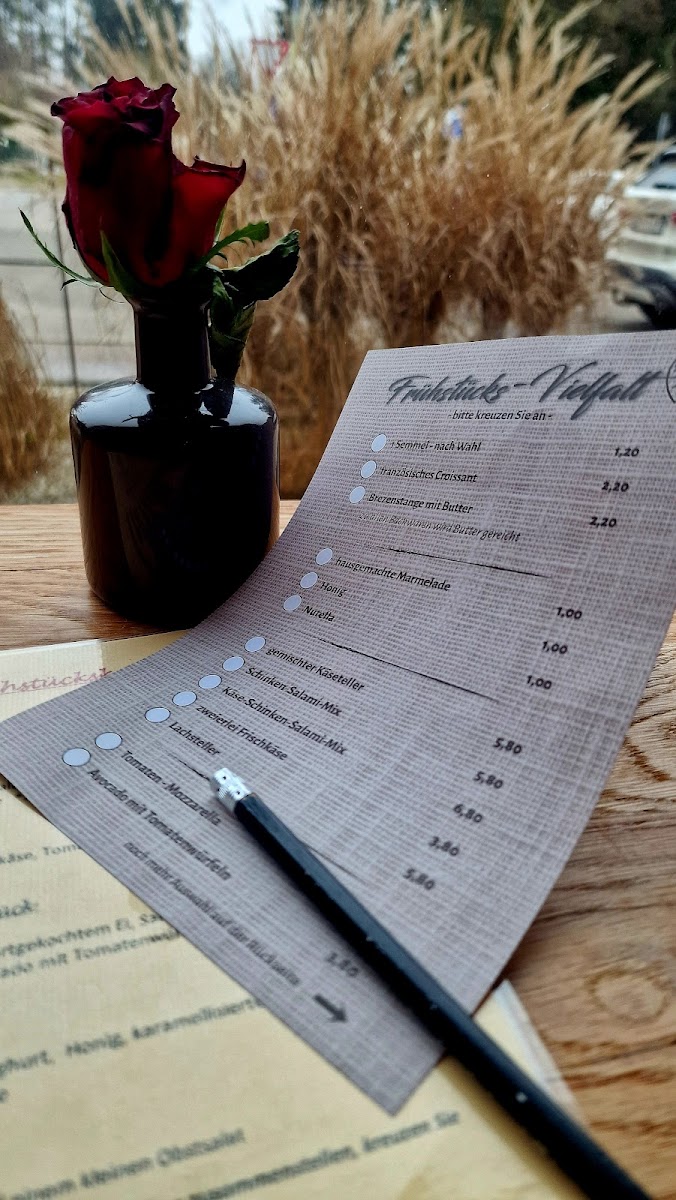 Frühstücks-Vielfalt
- bitte kreuzen Sie an -
1 Semmel - nach Wahl 1,20
französisches Croissant 2,20
Brezenstange mit Butter 2,20
wird Butter gereicht
hausgemachte Marmelade 1,00
Honig 1,00
Nutella 1,00
gemischter Käseteller 5,80
Schinken-Salami-Mix 5,80
Käse-Schinken-Salami-Mix 6,80
zweierlei Frischkäse 3,80
Lachsteller 5,80
Tomaten-Mozzarella
Avocado mit Tomatenwürfeln 3,80
noch mehr Auswahl auf der Rückseite
käse, Tom
ück:
artgekochtem Ei,
ado mit Tomatenwü
ghurt, Honig, karamellisierte
einem kleinen Obstsalat
zusammenstellen, kreuzen Sie